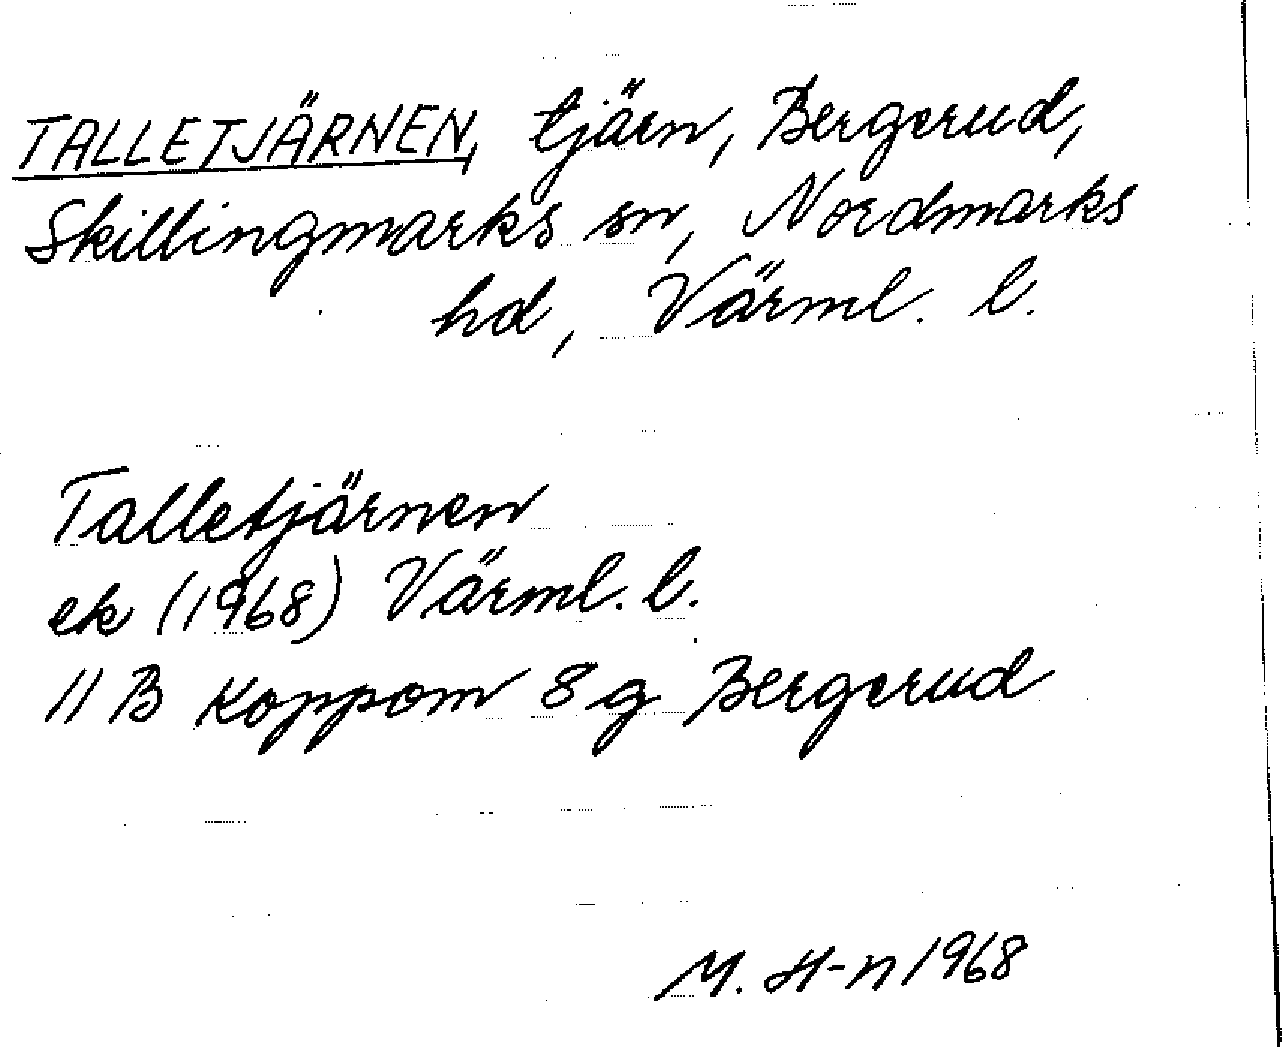 TALLETJÄRNEN, tjärn, Bergerud,
Skillingmarks sn, Nordmarks
hd, Värml. l.
Talletjärnen
ek (1968) Värml. l.
11 B Koppom 8 g Bergerud
M. H-n 1968